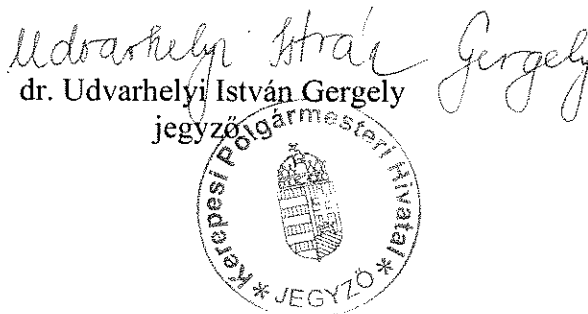 Udvarhelyi István Gergely
dr. Udvarhelyi István Gergely
jegyző
Kerepesi Polgármesteri Hivatal
* JEGYZŐ *